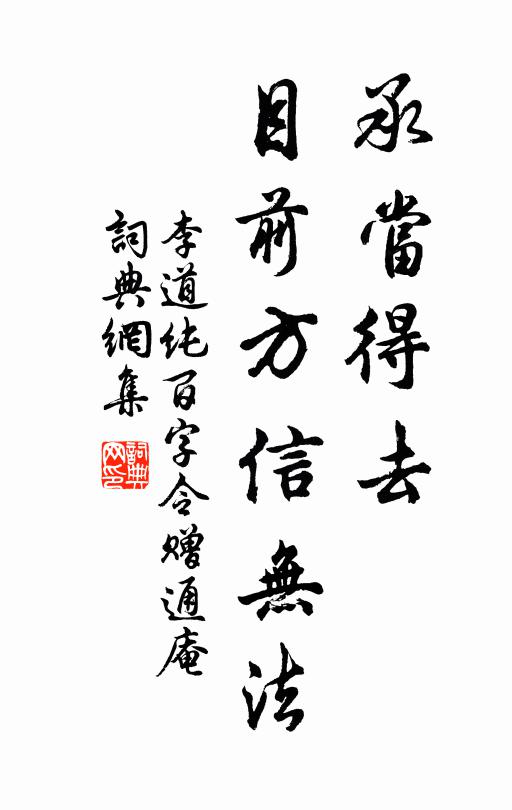 承當得去
目前方信無法
李道纯百字令赠通庵
詞典網集
詞典網印